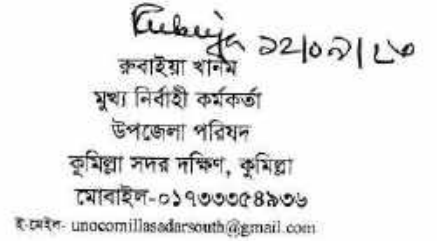 ১২/০৭/২৩
রুবাইয়া খানম
মুখ্য নির্বাহী কর্মকর্তা
উপজেলা পরিষদ
কুমিল্লা সদর দক্ষিণ, কুমিল্লা
মোবাইল-০১৭৩৩৩৫৪৯৩৬
ই-মেইল- unocomillasadarsouth@gmail.com